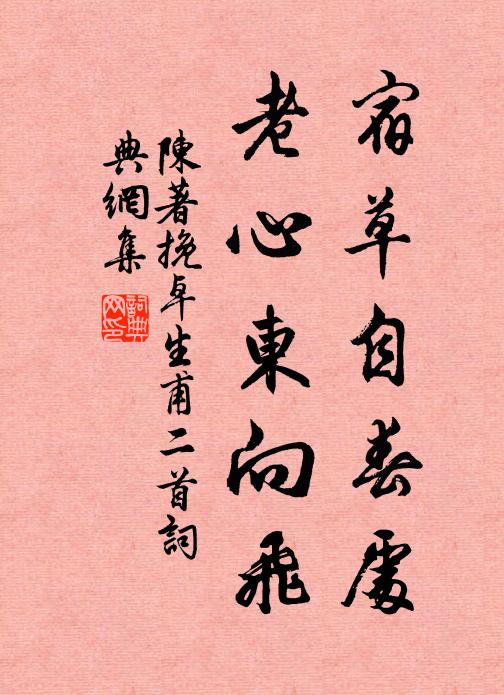 宿草自春處
老心東向飛
陳著挽卓生甫二首詞
典網集
詞典網印